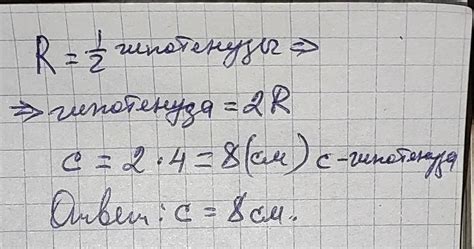 R = 1/2 гипотенузы ⇒
⇒ гипотенуза = 2R
c = 2 · 4 = 8 (см) c - гипотенуза
Ответ: c = 8 см.